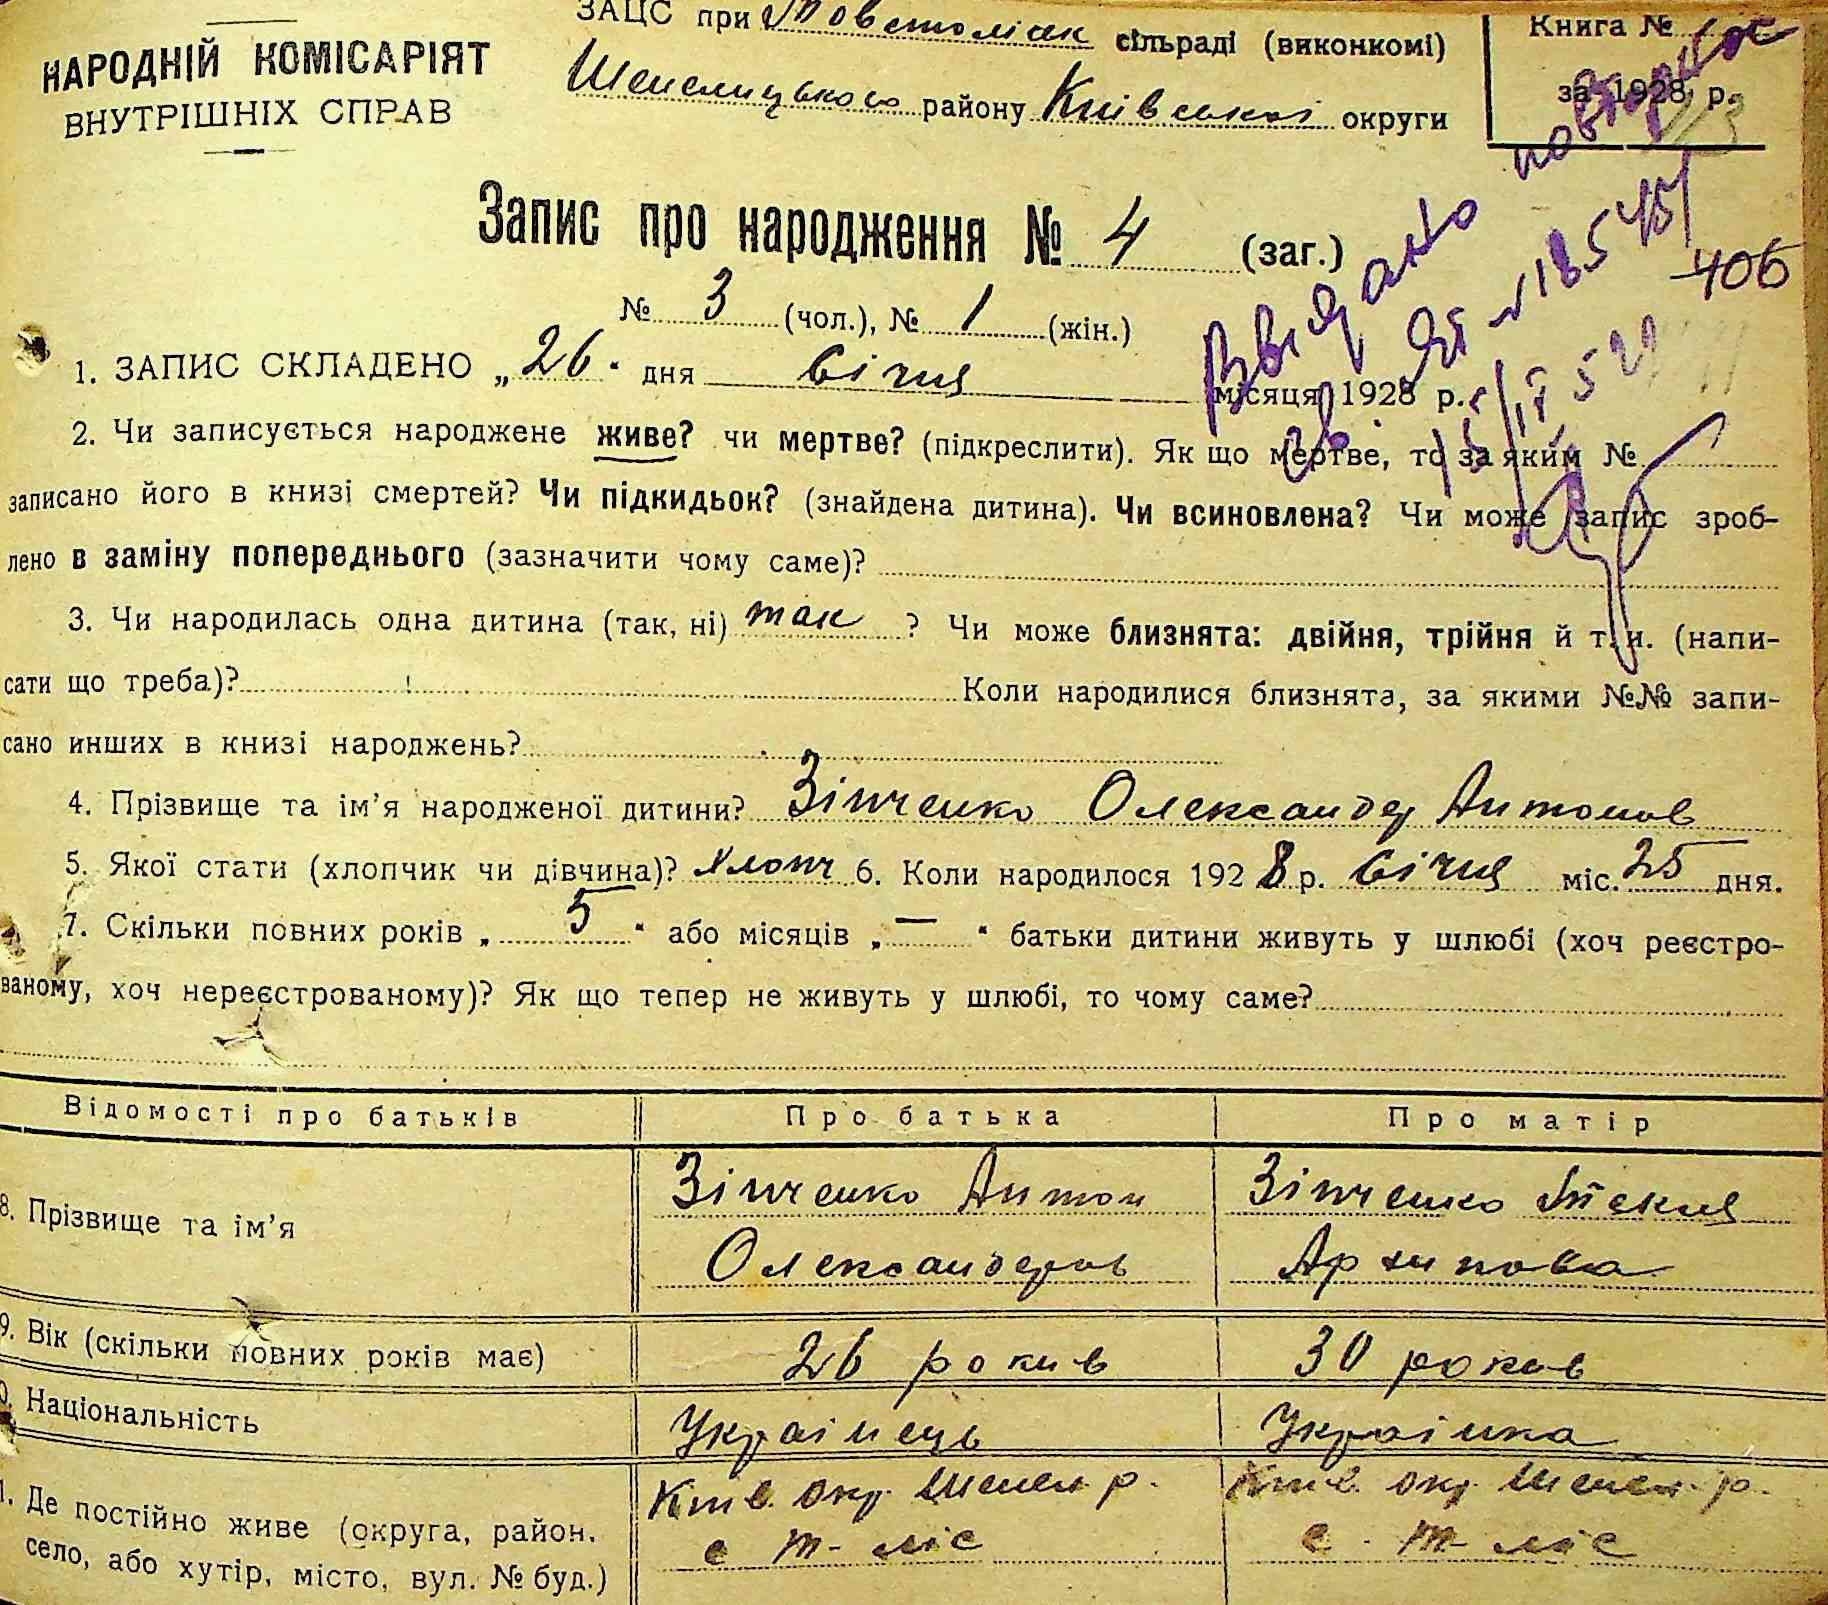 НАРОДНІЙ КОМІСАРІЯТ
ВНУТРІШНІХ СПРАВ
ЗАЦС при Товстоліськ сільраді (виконкомі)
Шепелицького району Київської округи
Книга №
за 1928 р.
Видано повторное
406
Запис про народження № 4 (заг.)
№ 3 (чол.), № 1 (жін.)
1. ЗАПИС СКЛАДЕНО „26“ дня Січня місяця 1928 р.
2. Чи записується народжене живе? чи мертве? (підкреслити). Як що мертве, то за яким №
записано його в книзі смертей? Чи підкидьок? (знайдена дитина). Чи всиновлена? Чи може запис зроб-
лено в заміну попереднього (зазначити чому саме)?
3. Чи народилась одна дитина (так, ні) так ? Чи може близнята: двійня, трійня й т. и. (напи-
сати що треба)? Коли народилися близнята, за якими №№ запи-
сано инших в книзі народжень?
4. Прізвище та ім'я народженої дитини? Зінченко Олександер Антонов
5. Якої стати (хлопчик чи дівчина)? Хлопч 6. Коли народилося 1928 р. Січня міс. 25 дня.
7. Скільки повних років „5“ або місяців „—“ батьки дитини живуть у шлюбі (хоч реєстро-
ваному, хоч нереєстрованому)? Як що тепер не живуть у шлюбі, то чому саме?
Відомості про батьків Про батька Про матір
8. Прізвище та ім'я Зінченко Антон Олександеров Зінченко Текля Архипова
9. Вік (скільки повних років має) 26 рокив 30 рокив
0. Національність Українець Українка
1. Де постійно живе (округа, район, село, або хутір, місто, вул. № буд.) Київ. окр. Шепел. р. с Т-ліс Київ. окр. Шепел. р. с. Т-ліс